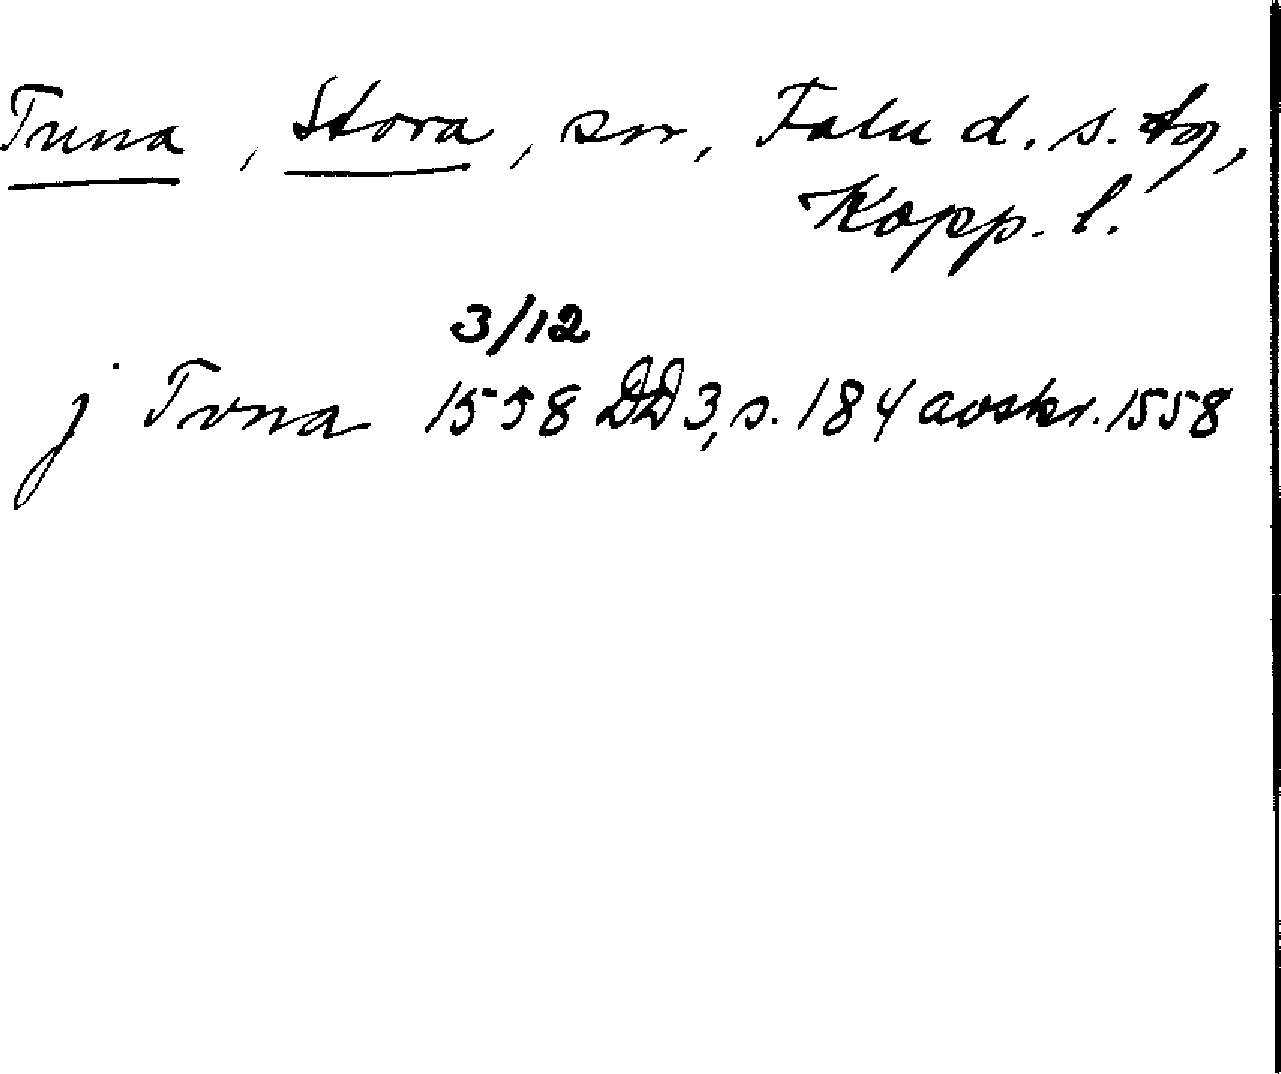 Tuna, Stora, sn, Falu d. s. tg,
Kopp. l.
3/12
j Tvna 1558 DD 3, s. 184 avskr. 1558